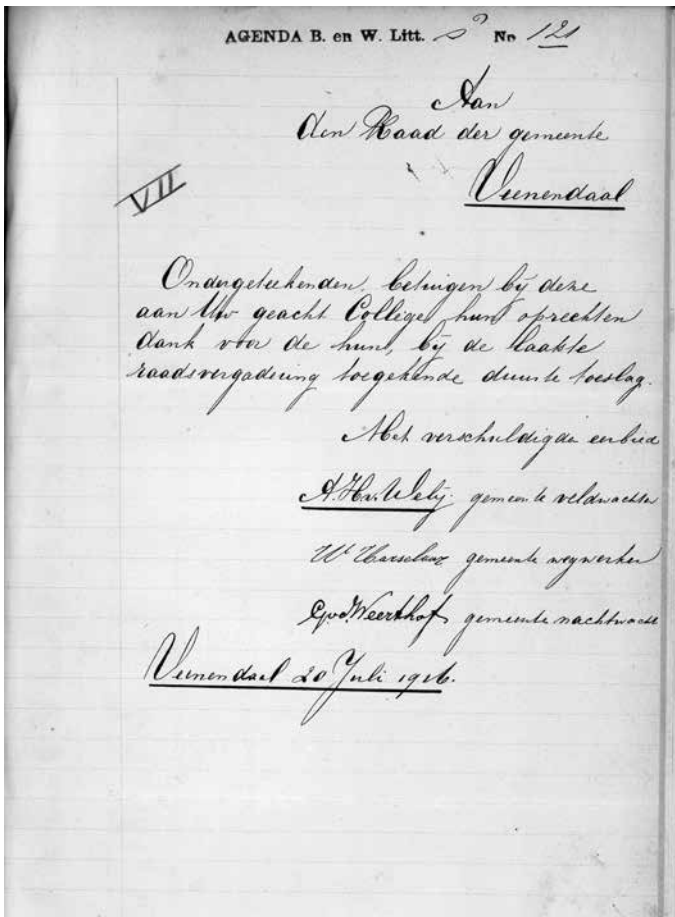 AGENDA B. en W. Litt. S No 121
Aan
den Raad der gemeente
VII
Veenendaal
Ondergeteekenden, betuigen bij deze
aan Uw geacht College, hun oprechten
dank voor de hun, bij de laatste
raadsvergadering toegekende duurte toeslag.
Met verschuldigde eerbied
A.H.v. Welij. gemeente veldwachter
W Harselaar gemeente wegwerker
G.v.d. Weerthof gemeente nachtwacht
Veenendaal 20 Juli 1916.